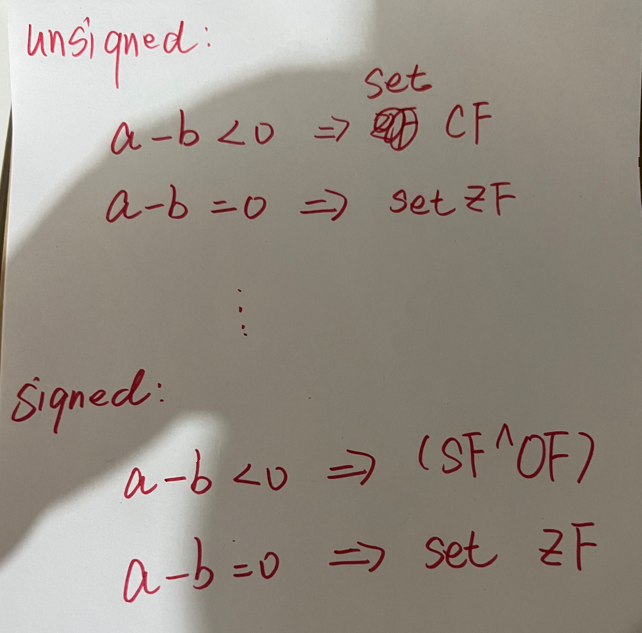 unsigned:
set
a-b <0 => CF
a-b =0 => set ZF
⋮
Signed:
a-b <0 => (SF^OF)
a-b =0 => set ZF